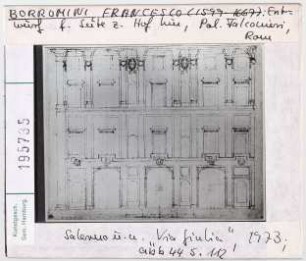 BORROMINI FRANCESCO (1599-1667): Ent-
wurf f. Seite z. Hof hin, Pal. Falconieri,
Rom
195735
Kunstgesch.
Sem. Hamburg
Salerno u.a. "Via Giulia", 1973,
Abb 44 S. 112